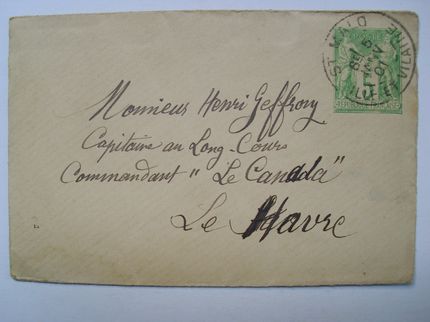 ST MALO
ILLE-ET-VILAINE
Monsieur Henri Geffroy
Capitaine au Long-Cours
Commandant "Le Canada"
Le Havre